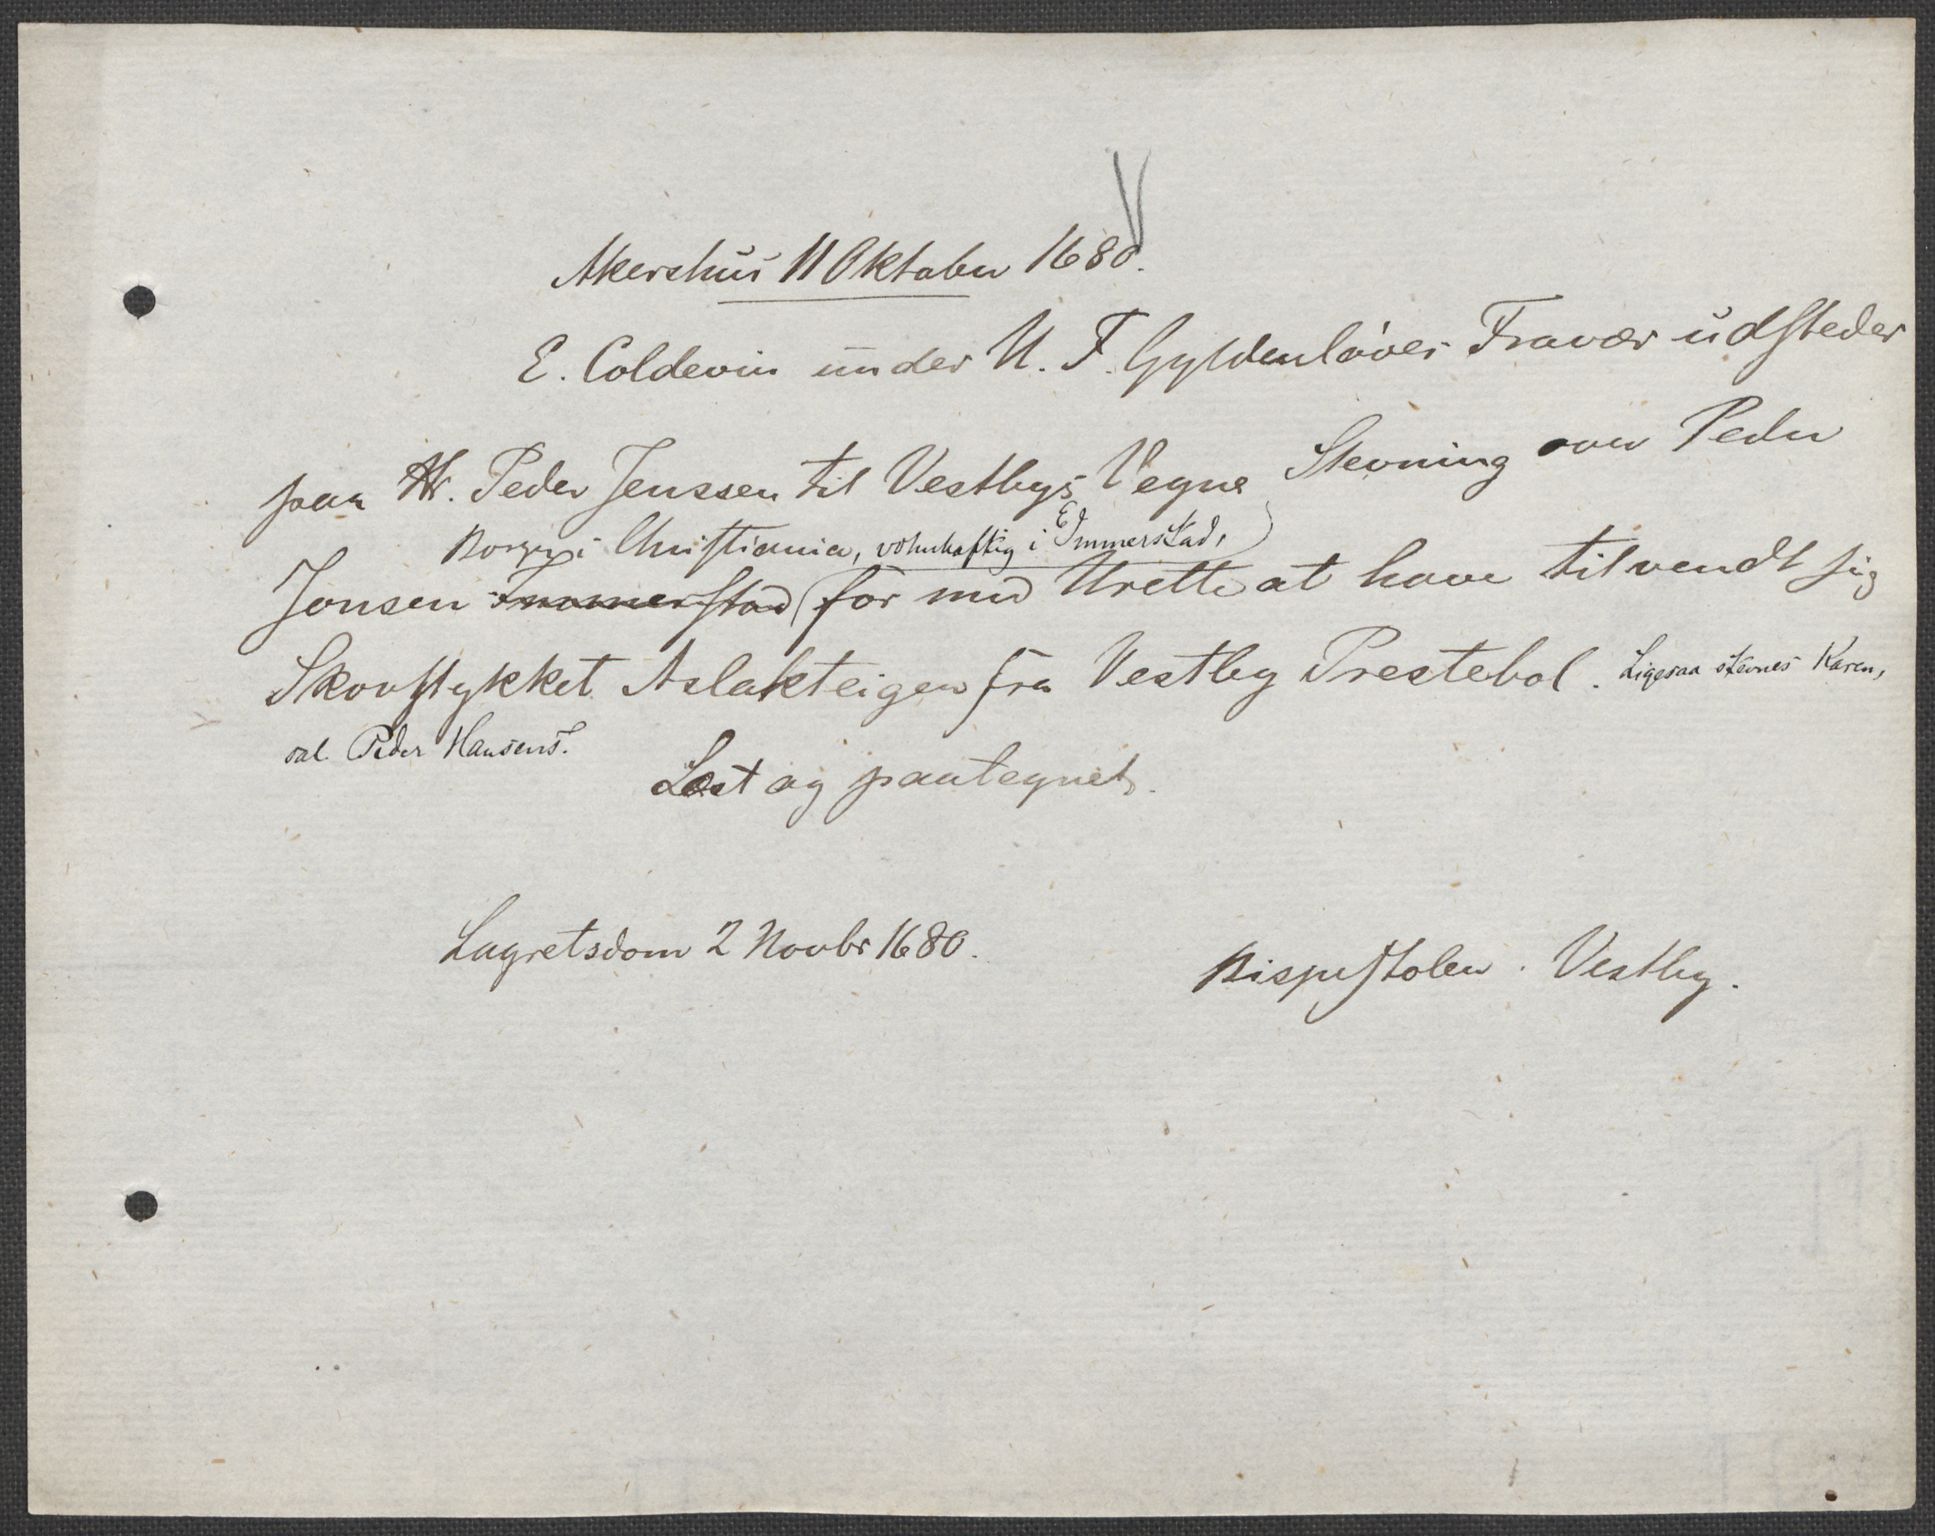 Akershus 11 Oktober 1680.
E. Coldevin under U. F. Gyldenløves Fravær udsteder
paa Hr. Peder Jenssen til Vestbys Vegne Stevning over Peder
Borger i Christiania, vohnhaftig i Emmerstad,
Jonsen Immerstad for med Urette at have tilvendt sig
Skovstykket Aslakteigen fra Vestby Prestebol. Ligesaa stevnes Karen,
sal. Peder Hansens.
Læst og paategnet.
Lagretsdom 2 Novbr 1680.
Bispestolen. Vestby.